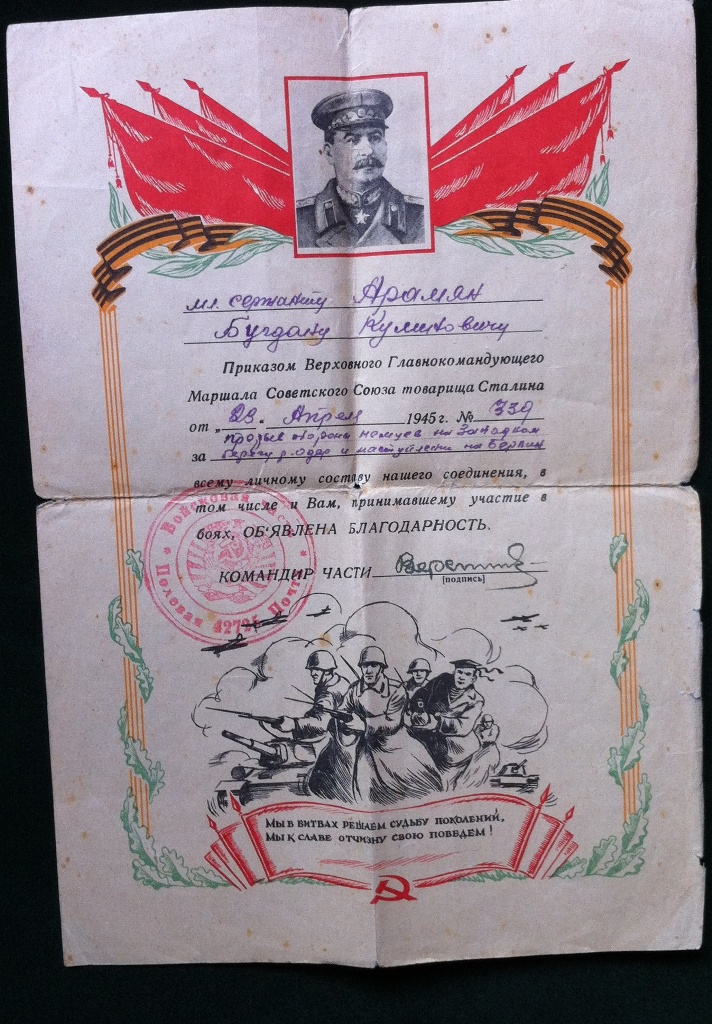 мл. сержанту Арамян
Бугдану Кумиковичу
Приказом Верховного Главнокомандующего
Маршала Советского Союза товарища Сталина
от „23 " Апреля 1945 г. № 339
прорыв обороны немцев на Западном
за берегу р. Одер и наступление на Берлин
всему личному составу нашего соединения, в
том числе и Вам, принимавшему участие в
боях, ОБ'ЯВЛЕНА БЛАГОДАРНОСТЬ.
Войсковая часть
Полевая Почта 42721
КОМАНДИР ЧАСТИ
[подпись]
МЫ В БИТВАХ РЕШАЕМ СУДЬБУ ПОКОЛЕНИЙ,
МЫ К СЛАВЕ ОТЧИЗНУ СВОЮ ПОВЕДЕМ!